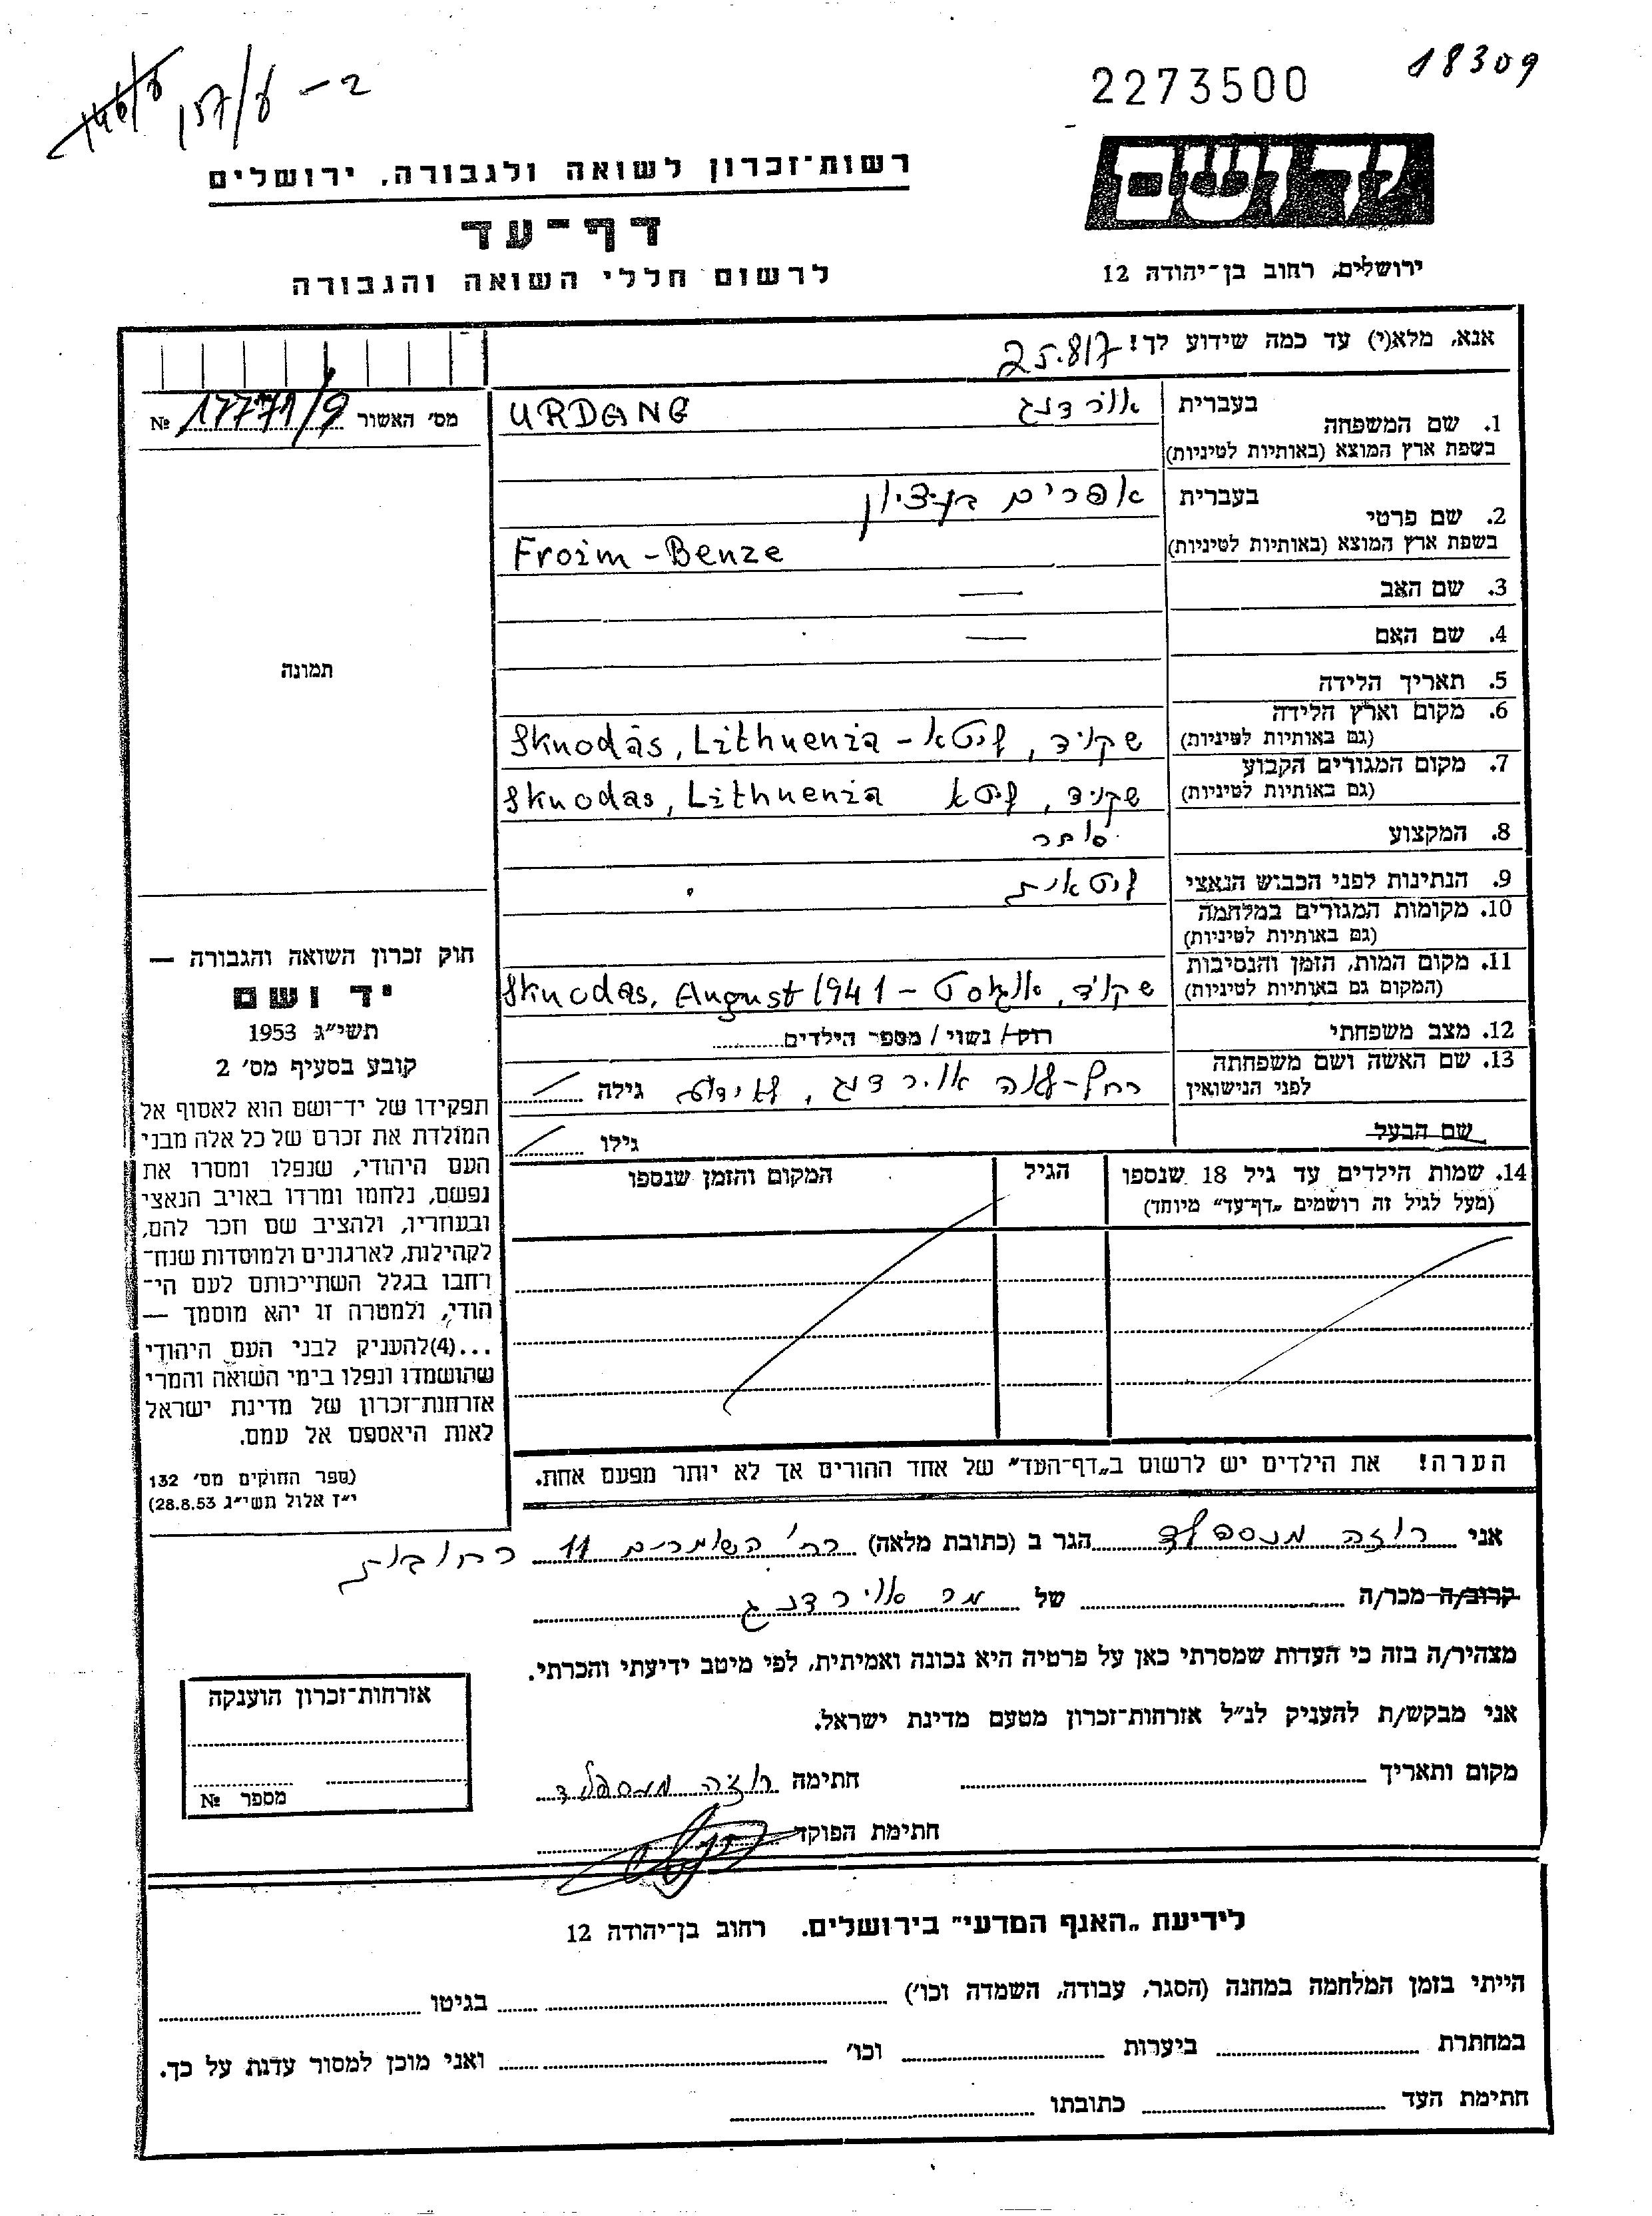 18309
2273500
157/ע - 2
יד ושם
רשות־זכרון לשואה ולגבורה, ירושלים
דף־עד
לרשום חללי השואה והגבורה
ירושלים, רחוב בן־יהודה 12
אנא, מלא(י) עד כמה שידוע לך! 25.817
מס׳ האשור 17771/9 №
1. שם המשפחה
בעברית אורדנג URDANG
בשפת ארץ המוצא (באותיות לטיניות)
2. שם פרטי
בעברית אפרים בן-ציון
בשפת ארץ המוצא (באותיות לטיניות) Froim - Benze
3. שם האב —
4. שם האם —
תמונה
5. תאריך הלידה
6. מקום וארץ הלידה
(גם באותיות לטיניות) שקניד, ליטא - Skuodas, Lithuenia
7. מקום המגורים הקבוע
(גם באותיות לטיניות) שקניד, ליטא Skuodas, Lithuenia
8. המקצוע סוחר
9. הנתינות לפני הכבוש הנאצי ליטאית
10. מקומות המגורים במלחמה
(גם באותיות לטיניות)
11. מקום המות, הזמן והנסיבות
(המקום גם באותיות לטיניות) שקניד, אוגוסט - Skuodas, August 1941
12. מצב משפחתי רווק / נשוי / מספר הילדים
13. שם האשה ושם משפחתה
לפני הנישואין רחל-לאה אורדנג, גילה
שם הבעל גילו
14. שמות הילדים עד גיל 18 שנספו הגיל המקום והזמן שנספו
(מעל לגיל זה רושמים „דף־עד״ מיוחד)
הערה! את הילדים יש לרשום ב„דף־העד״ של אחד ההורים אך לא יותר מפעם אחת.
חוק זכרון השואה והגבורה —
יד ושם
תשי״ג 1953
קובע בסעיף מס׳ 2
תפקידו של יד־ושם הוא לאסוף אל
המולדת את זכרם של כל אלה מבני
העם היהודי, שנפלו ומסרו את
נפשם, נלחמו ומרדו באויב הנאצי
ובעוזריו, ולהציב שם וזכר להם,
לקהילות, לארגונים ולמוסדות שנח־
רחבו בגלל השתייכותם לעם הי־
הודי, ולמטרה זו יהא מוסמך —
...(4)להעניק לבני העם היהודי
שהושמדו ונפלו בימי השואה והמרי
אזרחות־זכרון של מדינת ישראל
לאות היאספם אל עמם.
(ספר החוקים מס׳ 132
י״ז אלול תשי״ג 28.8.53)
אני רוזה מנספלד הגר ב (כתובת מלאה) רח׳ השומרים 11 רחובות
קרוב/ה מכר/ה של מר אורדנג
מצהיר/ה בזה כי העדות שמסרתי כאן על פרטיה היא נכונה ואמיתית, לפי מיטב ידיעתי והכרתי.
אני מבקש/ת להעניק לנ״ל אזרחות־זכרון מטעם מדינת ישראל.
מקום ותאריך חתימה רוזה מנספלד
חתימת הפוקד
אזרחות־זכרון הוענקה
מספר №
לידיעת „האגף המדעי״ בירושלים. רחוב בן־יהודה 12
הייתי בזמן המלחמה במחנה (הסגר, עבודה, השמדה וכו׳) בגיטו
במחתרת ביערות וכו׳ ואני מוכן למסור עדות על כך.
חתימת העד כתובתו